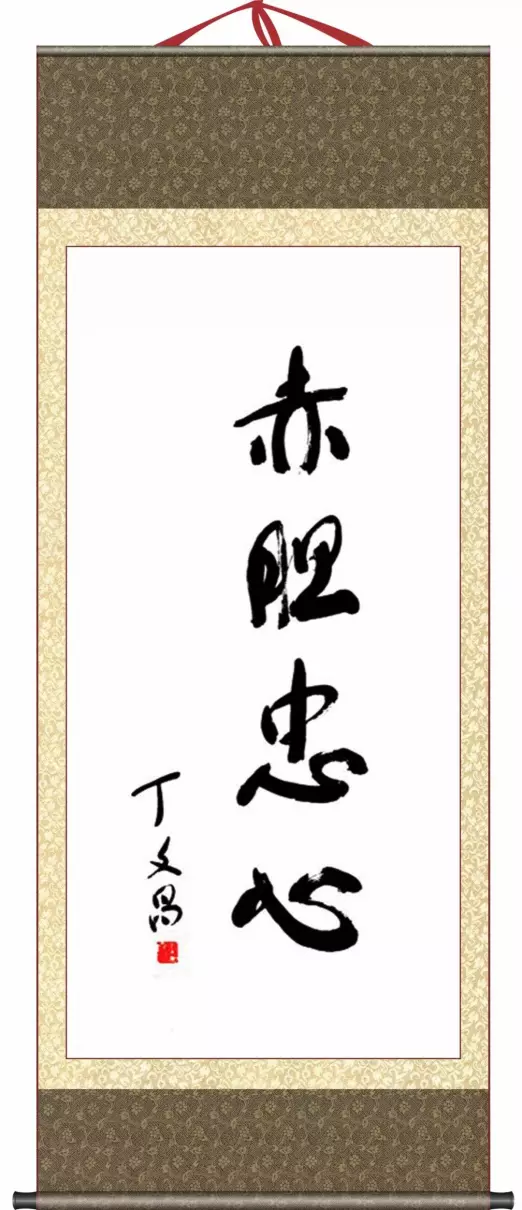 赤胆忠心
丁文昌